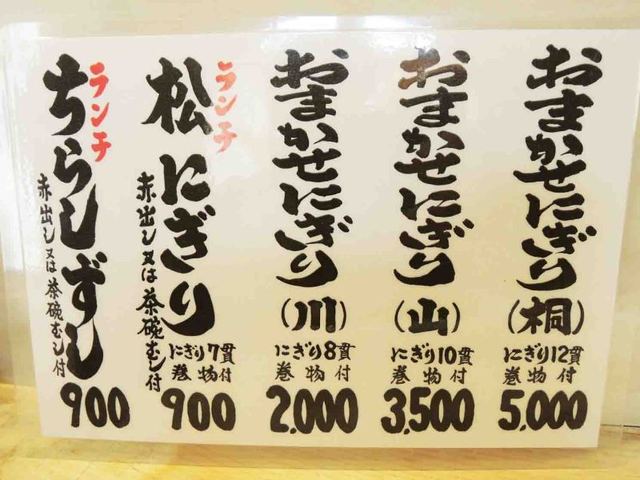 おまかせにぎり
(桐)
にぎり12貫
巻物付
5,000
おまかせにぎり
(山)
にぎり10貫
巻物付
3,500
おまかせにぎり
(川)
にぎり8貫
巻物付
2,000
ランチ
松にぎり
赤出し又は茶碗むし付
にぎり7貫
巻物付
900
ランチ
ちらしずし
赤出し又は茶碗むし付
900